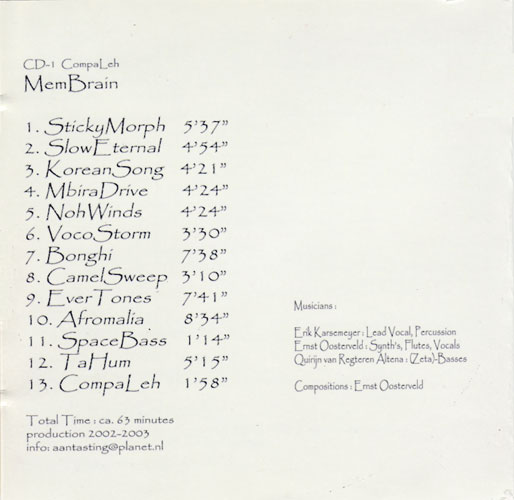 CD-1 CompaLeh
MemBrain
1. StickyMorph 5'37"
2. SlowEternal 4'54"
3. KoreanSong 4'21"
4. MbiraDrive 4'24"
5. NohWinds 4'24"
6. VocoStorm 3'30"
7. Bonghi 7'38"
8. CamelSweep 3'10"
9. EverTones 7'41"
10. Afromalia 8'34"
11. SpaceBass 1'14"
12. TaHum 5'15"
13. CompaLeh 1'58"
Total Time : ca. 63 minutes
production 2002-2003
info: aantasting@planet.nl
Musicians :
Erik Karsemeyer : Lead Vocal, Percussion
Ernst Oosterveld : Synth's, Flutes, Vocals
Quirijn van Regteren Altena : (Zeta)-Basses
Compositions : Ernst Oosterveld